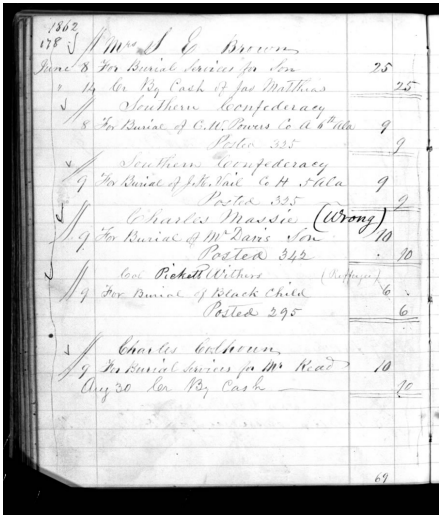 1862
178 Mrs S E Brown
June 8 For Burial Services for Son 25
" 14 Cr By Cash of Jas Matthews 25
Southern Confederacy
8 For Burial of C.W. Powers Co A 6th Ala 9
Posted 325 9
Southern Confederacy
9 For Burial of J.K. Vail Co H 5 Ala 9
Posted 325 9
Charles Massie (Wrong)
9 For Burial of Mr Davis Son 10
Posted 342 10
Col Pickett Withers
9 For Burial of Black Child 6
Posted 295 6
Charles Calhoun
9 For Burial Services for Mr Read 10
Aug 30 Cr By Cash 10
69